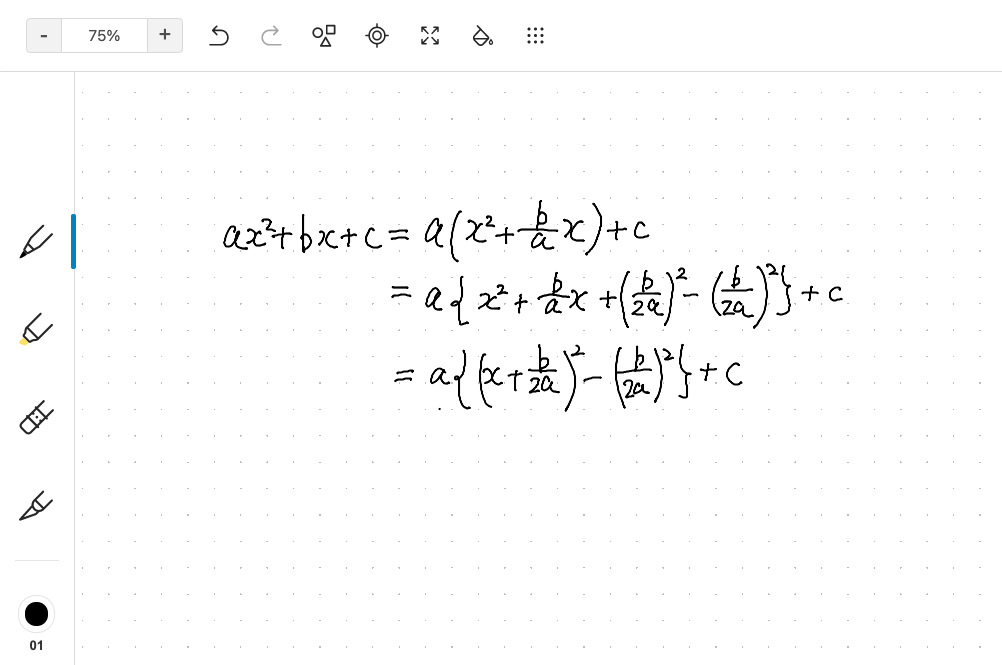 - 75% +
ax²+bx+c = a(x²+b/a x)+c
= a{x²+b/a x+(b/2a)²-(b/2a)²}+c
= a{(x+b/2a)²-(b/2a)²}+c
01